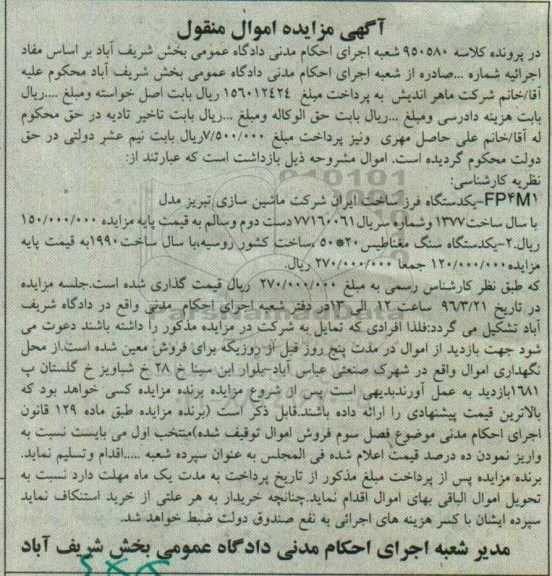 آگهی مزایده اموال منقول
در پرونده کلاسه ۹۵۰۵۸۰ شعبه اجرای احکام مدنی دادگاه عمومی بخش شریف آباد بر اساس مفاد
اجرائیه شماره ...صادره از شعبه اجرای احکام مدنی دادگاه عمومی بخش شریف آباد محکوم علیه
آقا/خانم شرکت ماهر اندیش به پرداخت مبلغ ۱۵۶۰۱۲۴۲۴ ریال بابت اصل خواسته ومبلغ ....ریال
بابت هزینه دادرسی ومبلغ ...ریال بابت حق الوکاله ومبلغ ...ریال بابت تاخیر تادیه در حق محکوم
له آقا/خانم علی حاصل مهری ونیز پرداخت مبلغ ۷/۵۰۰/۰۰۰ریال بابت نیم عشر دولتی در حق
دولت محکوم گردیده است. اموال مشروحه ذیل بازداشت است که عبارتند از:
نظریه کارشناسی:
FP۴M۱-یکدستگاه فرز ساخت ایران شرکت ماشین سازی تبریز مدل
با سال ساخت۱۳۷۷ وشماره سریال۷۷۱۶۰۰۶۱ دست دوم وسالم به قیمت پایه مزایده ۱۵۰/۰۰۰/۰۰۰
ریال.۲-یکدستگاه سنگ مغناطیس۲۰*۵۰ ،ساخت کشور روسیه،با سال ساخت۱۹۹۰به قیمت پایه
مزایده۱۲۰/۰۰۰/۰۰۰ جمعا ۲۷۰/۰۰۰/۰۰۰ ریال.
که طبق نظر کارشناس رسمی به مبلغ ۲۷۰/۰۰۰/۰۰۰ ریال قیمت گذاری شده است.جلسه مزایده
در تاریخ ۹۶/۳/۲۱ ساعت ۱۲ الی ۱۳در دفتر شعبه اجرای احکام مدنی واقع در دادگاه شریف
آباد تشکیل می گردد:فلذا افرادی که تمایل به شرکت در مزایده مذکور را داشته باشند دعوت می
شود جهت بازدید از اموال در مدت پنج روز قبل از روزیکه برای فروش معین شده است.از محل
نگهداری اموال واقع در شهرک صنعتی عباس آباد-بلوار ابن سینا خ ۲۸ خ شباویز خ گلستان پ
۱۶۸۱بازدید به عمل آورندبدیهی است پس از شروع مزایده برنده مزایده کسی خواهد بود که
بالاترین قیمت پیشنهادی را ارائه داده باشند.قابل ذکر است (برنده مزایده طبق ماده ۱۲۹ قانون
اجرای احکام مدنی موضوع فصل سوم فروش اموال توقیف شده)،منتخب اول می بایست نسبت به
واریز نمودن ده درصد قیمت اعلام شده فی المجلس به عنوان سپرده شعبه .....اقدام وتسلیم نماید.
برنده مزایده پس از پرداخت مبلغ مذکور از تاریخ پرداخت به مدت یک ماه مهلت دارد نسبت به
تحویل اموال الباقی بهای اموال اقدام نماید.چنانچه خریدار به هر علتی از خرید استنکاف نماید
سپرده ایشان با کسر هزینه های اجرائی به نفع صندوق دولت ضبط خواهد شد.
مدیر شعبه اجرای احکام مدنی دادگاه عمومی بخش شریف آباد